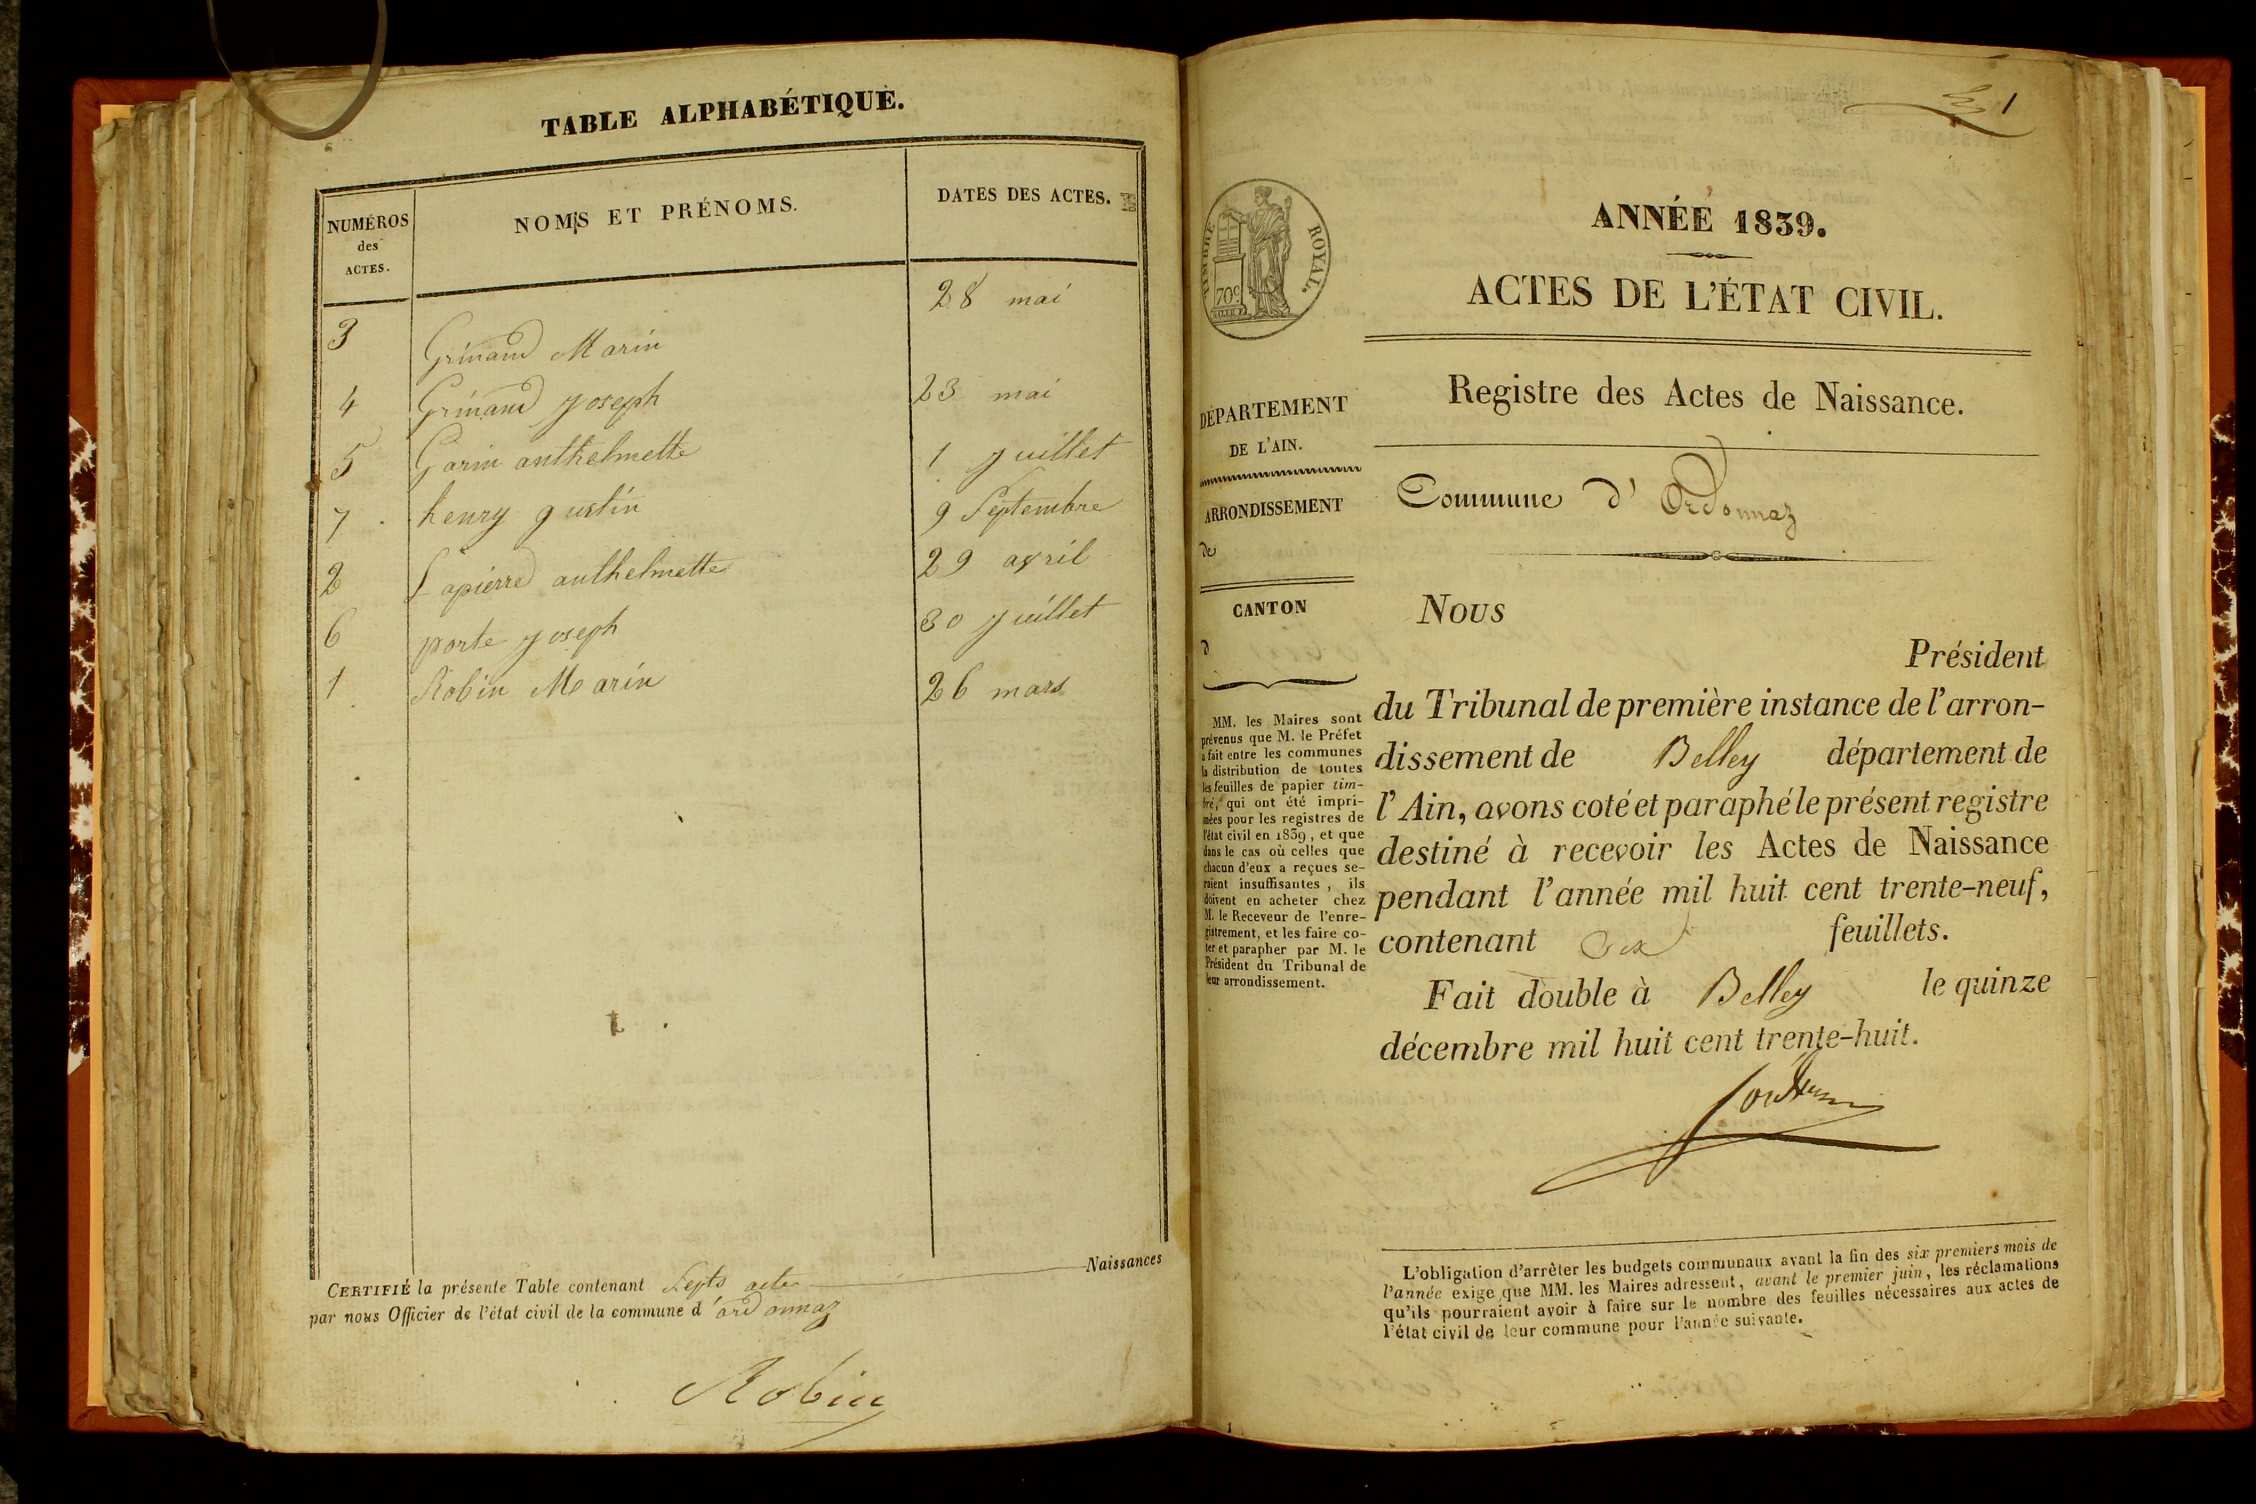 TABLE ALPHABÉTIQUE.
NUMÉROS
des
ACTES.
NOMS ET PRÉNOMS.
DATES DES ACTES.
3 Grinand Marin 28 mai
4 Grinand joseph 23 mai
5 Garin anthelmette 1 juillet
7 henry justin 9 Septembre
2 Lapierre anthelmette 29 avril
6 porte joseph 30 juillet
1 Robin Marin 26 mars
CERTIFIÉ la présente Table contenant Septs acte Naissances
par nous Officier de l'état civil de la commune d'ordonnaz
Robin
1
TIMBRE ROYAL.
70c
ANNÉE 1839.
ACTES DE L'ÉTAT CIVIL.
Registre des Actes de Naissance.
DÉPARTEMENT
DE L'AIN.
ARRONDISSEMENT
de
CANTON
d
MM. les Maires sont
prévenus que M. le Préfet
a fait entre les communes
la distribution de toutes
les feuilles de papier tim-
bré, qui ont été impri-
mées pour les registres de
l'état civil en 1839, et que
dans le cas où celles que
chacun d'eux a reçues se-
raient insuffisantes, ils
doivent en acheter chez
M. le Receveur de l'enre-
gistrement, et les faire co-
ter et parapher par M. le
Président du Tribunal de
leur arrondissement.
Commune d'Ordonnaz
Nous
Président
du Tribunal de première instance de l'arron-
dissement de Belley département de
l'Ain, avons coté et paraphé le présent registre
destiné à recevoir les Actes de Naissance
pendant l'année mil huit cent trente-neuf,
contenant Six feuillets.
Fait double à Belley le quinze
décembre mil huit cent trente-huit.
L'obligation d'arrêter les budgets communaux avant la fin des six premiers mois de
l'année exige que MM. les Maires adressent, avant le premier juin, les réclamations
qu'ils pourraient avoir à faire sur le nombre des feuilles nécessaires aux actes de
l'état civil de leur commune pour l'année suivante.
1